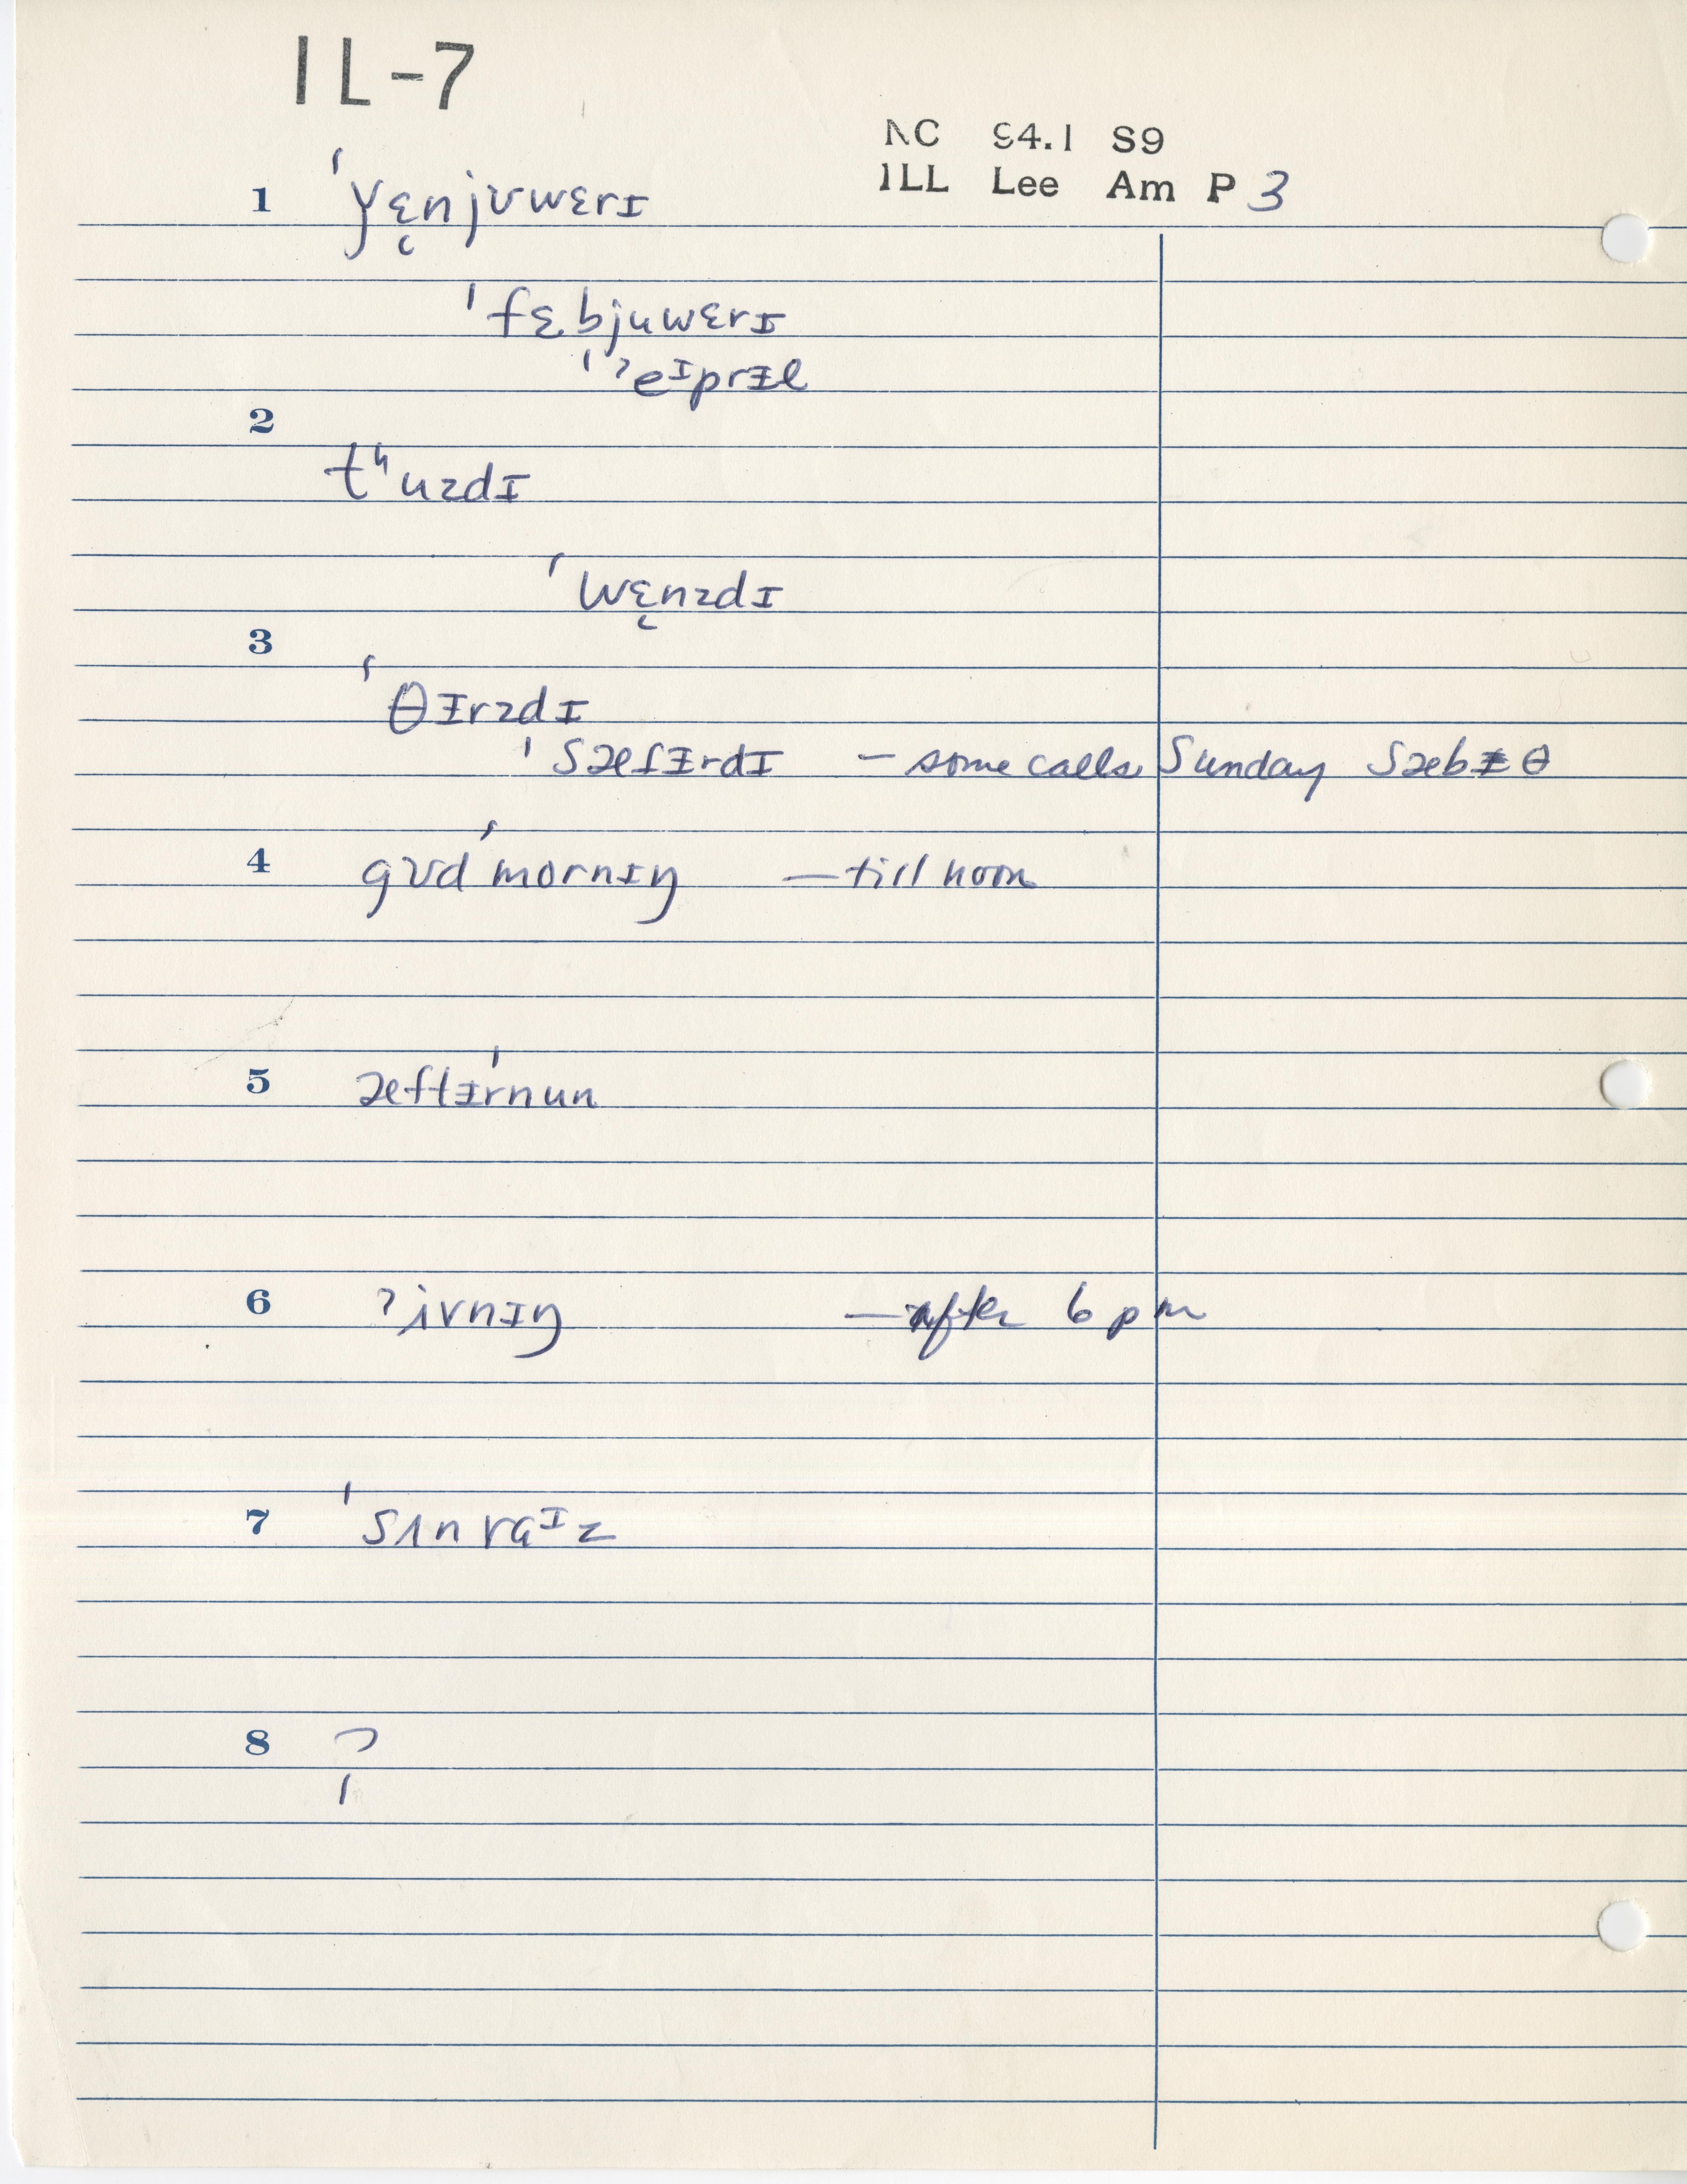 IL-7
NC 94.1 S9
ILL Lee Am P 3
1 ˈɣɛ̨njʊwɛrɪ
ˈfɛbjuwɛrɪ
ˈʔeᴵprɪ̵l
2
tʰuzdɪ
ˈwɛ̨nzdɪ
3
ˈθɪ̵rzdɪ
ˈsæfɪ̵rdɪ – some calls Sunday sæbɪ̵θ
4 gʊdˈmornɪŋ – till noon
5 æftɪ̵rˈnun
6 ʔivnɪŋ – after 6 pm
7 ˈsʌnraᴵz
8 ?